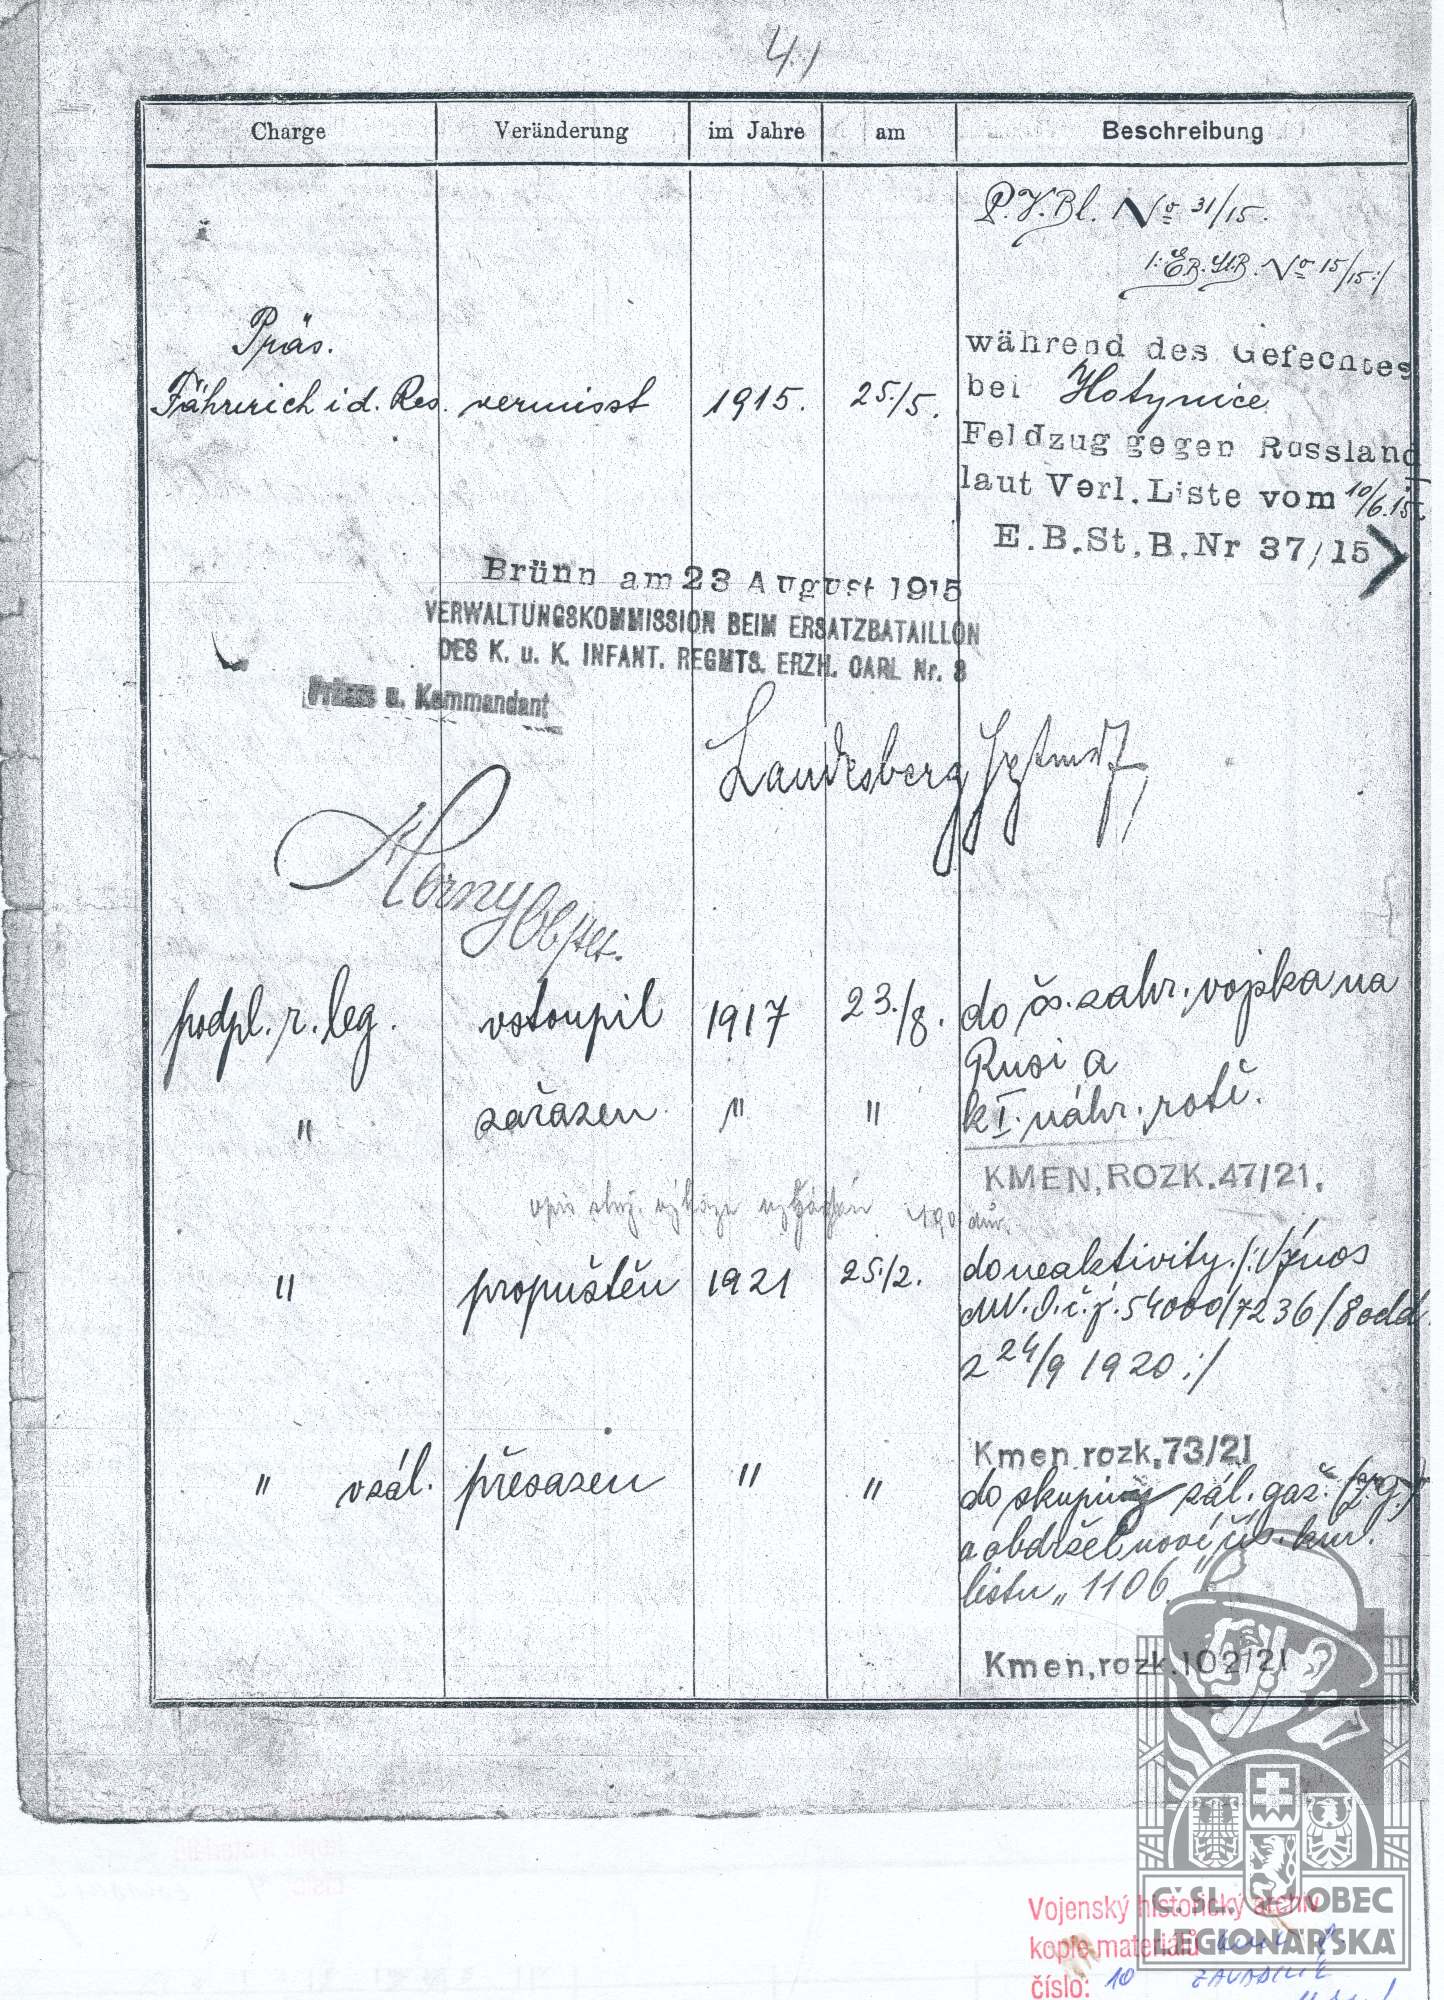 4./
Charge Veränderung im Jahre am Beschreibung
P.V.Bl. No 31/15.
/: E.B.St.B. No 15/15 :/
Präs.
Fähnrich i d. Res. vermisst 1915. 25./5. während des Gefechtes
bei Hotynice
Feldzug gegen Russland
laut Verl. Liste vom 10/6.15.
E.B.St.B.Nr 37/15
Brünn am 23 August 1915
VERWALTUNGSKOMMISSION BEIM ERSATZBATAILLON
DES K. u. K. INFANT. REGMTS. ERZH. CARL Nr. 8
Präses u. Kommandant
Landesberg
Horny Obstlt.
podpl. r. leg. vstoupil 1917 23./8. do čs. zahr. vojska na
Rusi a
" zařazen " " k I. náhr. rotě.
KMEN, ROZK. 47/21.
" propuštěn 1921 25./2. do neaktivity. /: Výnos
MN. O. č. j. 54000/7236/8 odd.
z 24/9 1920 :/
Kmen. rozk. 73/21
" v zál. přesazen " " do skupiny zál. gaž. (z. g.)
a obdržel nové čís. km.
listu „1106."
Kmen, rozk. 102/21
Č. SL. OBEC
LEGIONÁŘSKÁ
Vojenský historický archiv
kopie materiálů
číslo: 10